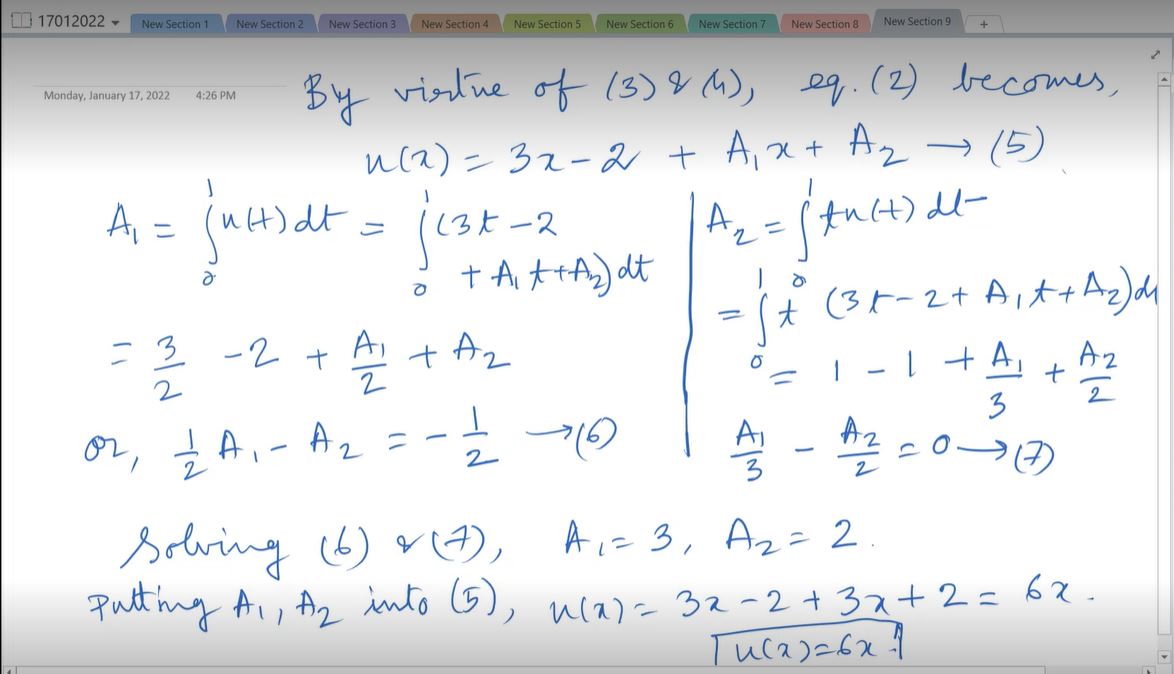 17012022 New Section 1 New Section 2 New Section 3 New Section 4 New Section 5 New Section 6 New Section 7 New Section 8 New Section 9 +
Monday, January 17, 2022 4:26 PM
By virtue of (3) & (4), eq. (2) becomes,
u(x) = 3x - 2 + A₁x + A₂ → (5)
A₁ = ∫₀¹ u(t) dt = ∫₀¹ (3t - 2
+ A₁t + A₂) dt
= 3/2 - 2 + A₁/2 + A₂
or, 1/2 A₁ - A₂ = - 1/2 → (6)
A₂ = ∫₀¹ t u(t) dt
= ∫₀¹ t (3t - 2 + A₁t + A₂) d
= 1 - 1 + A₁/3 + A₂/2
A₁/3 - A₂/2 = 0 → (7)
Solving (6) & (7), A₁ = 3, A₂ = 2.
Putting A₁, A₂ into (5), u(x) = 3x - 2 + 3x + 2 = 6x.
u(x) = 6x.